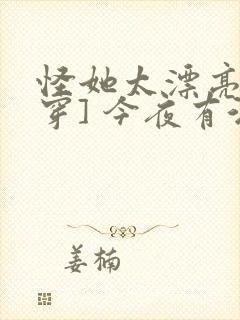 怪她太漂亮
穿]今夜有
姜楠